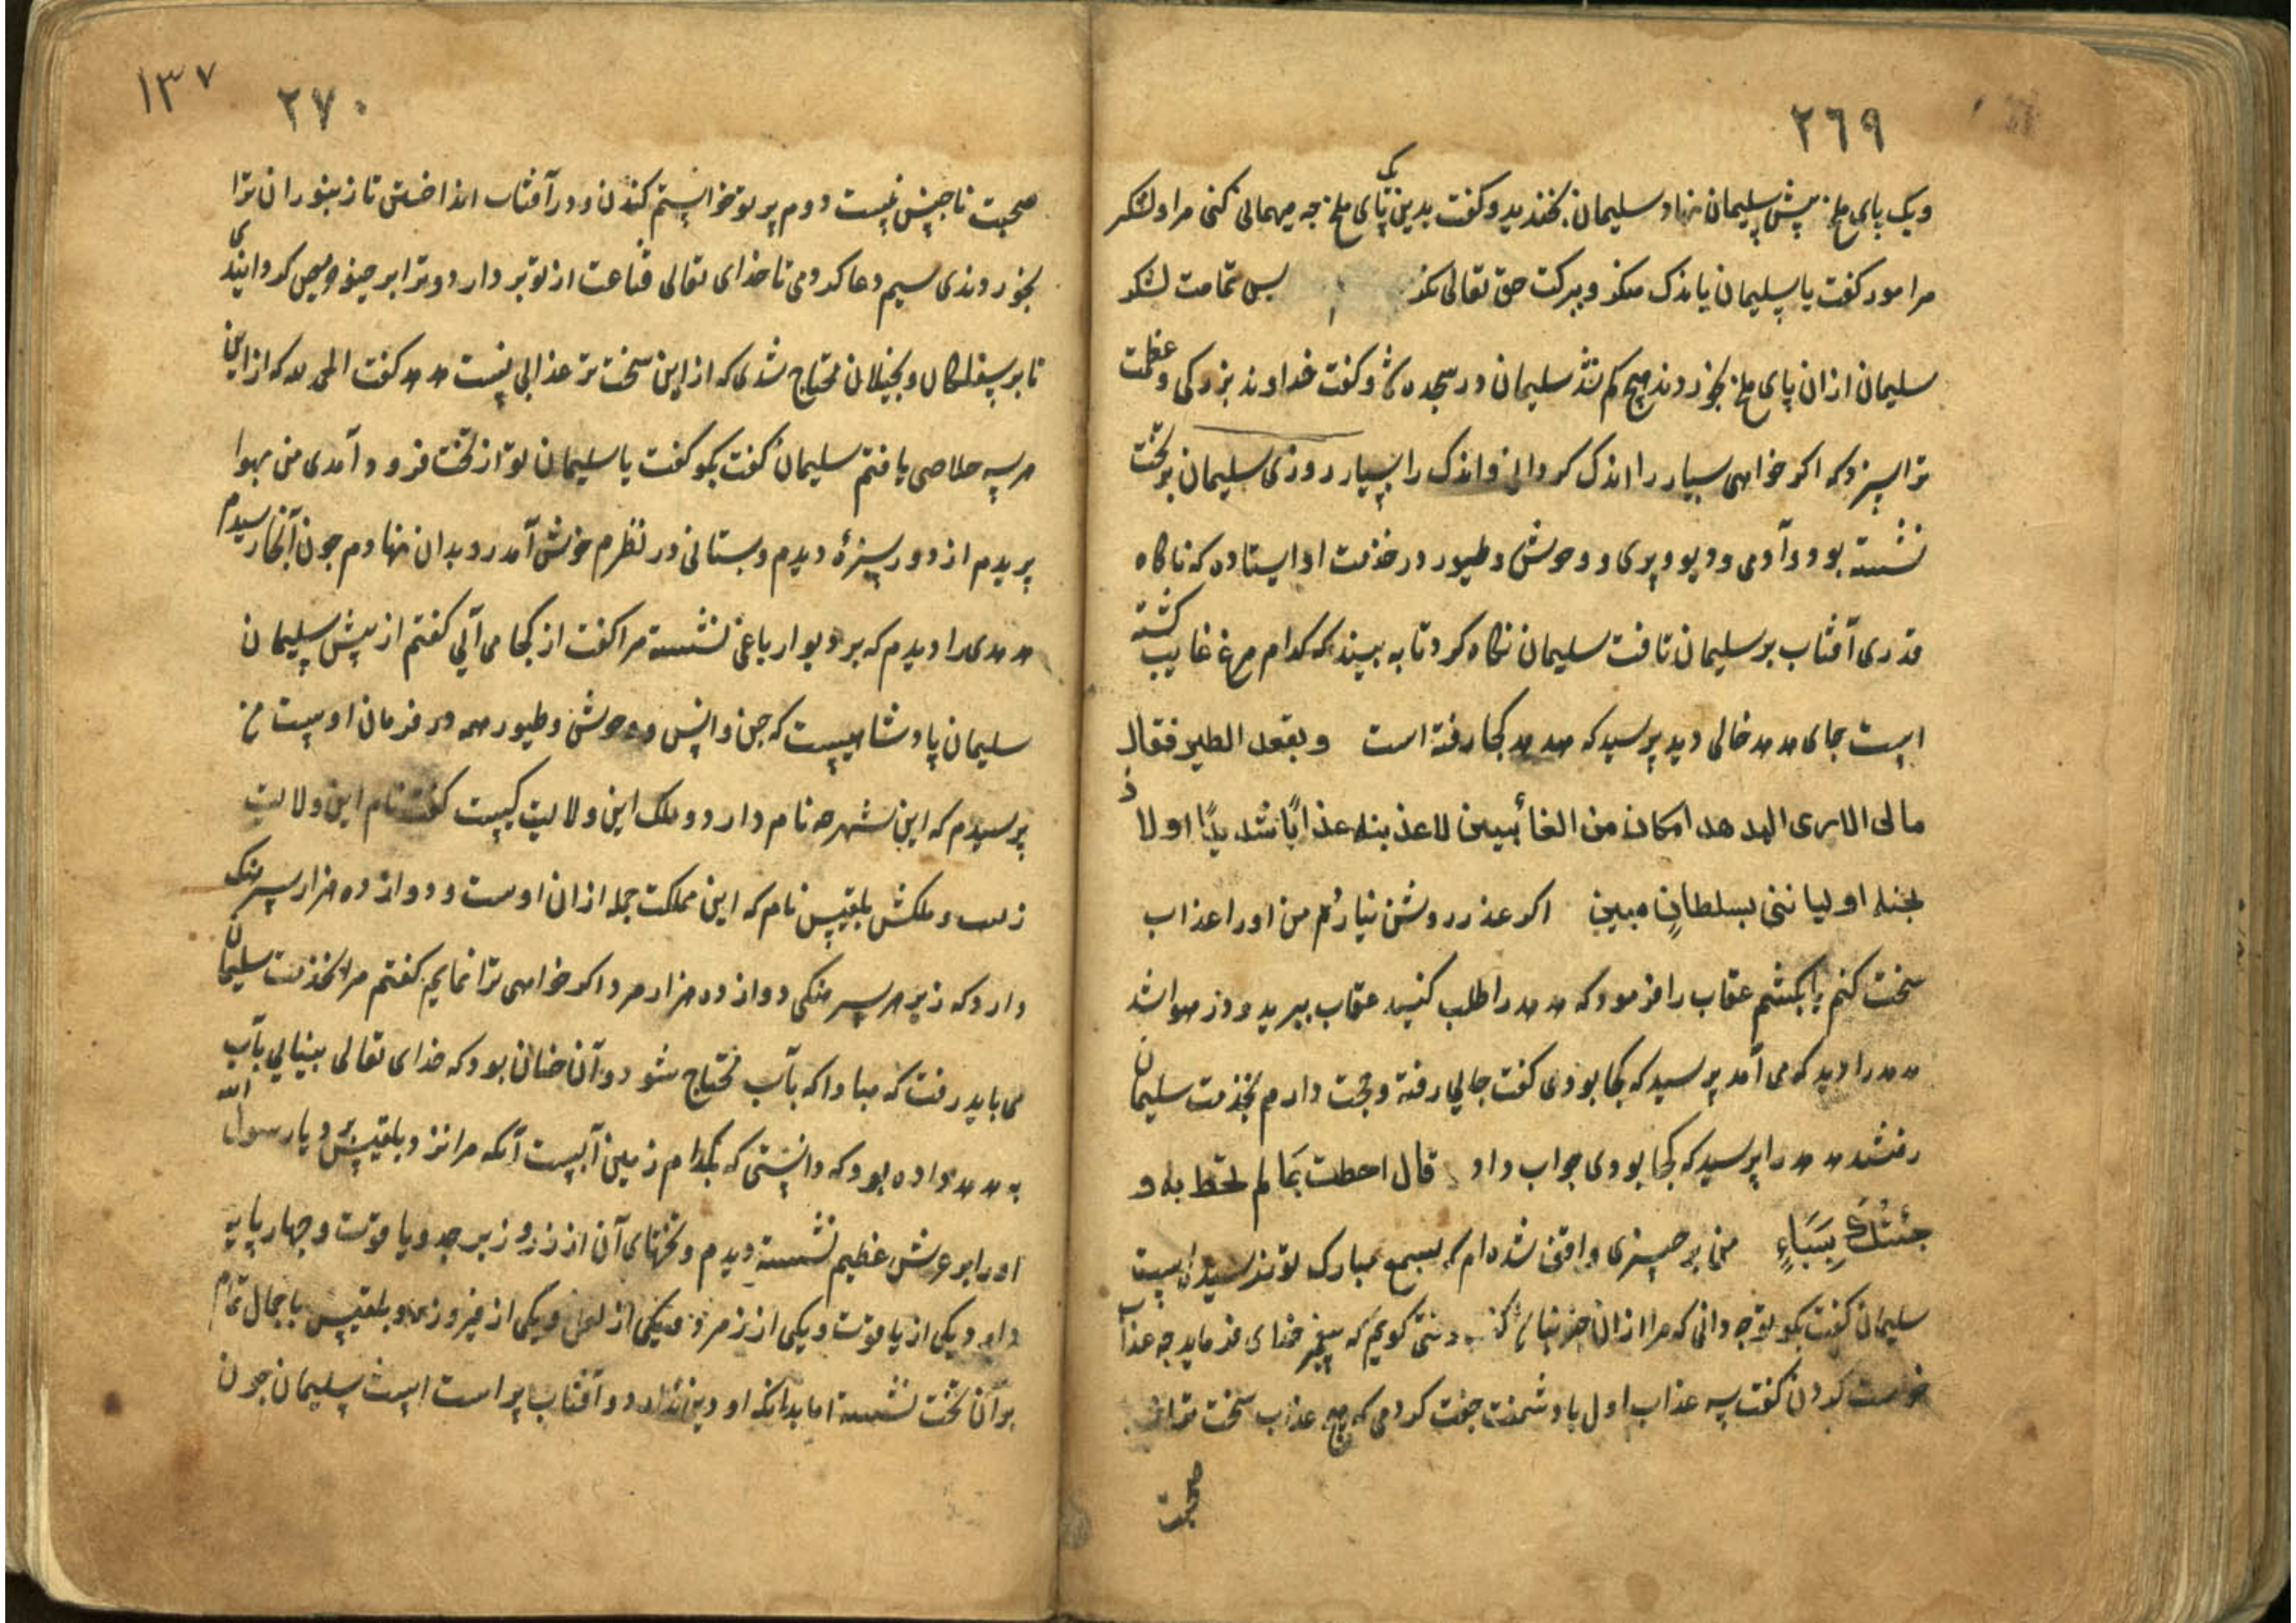 ٢٦٩
ویک پای ملخ پیش سلیمان نهاد سلیمان بخندید و کفت بدین یک پای ملخ چه میهمانی کنی مرا و لشکر
مرا مور کفت یا سلیمان باندک منکر و ببرکت حق تعالی نکر بس تمامت لشکر
سلیمان ازان پای ملخ بخوردند هیچ کم نشد سلیمان در سجده شد و کفت خداوند بزرکی و عظمت
ترا سزد که اکر خواهی بسیار را اندک کردانی و اندک را بسیار روزی سلیمان بر تخت
نشسته بود و آدمی و دیو و پری و وحوش و طیور در خدمت او ایستاده که ناکاه
قدری آفتاب بر سلیمان تافت سلیمان نکاه کرد تا به بیند که کدام مرغ غایب کشته
است جای هدهد خالی دید پرسید که هدهد کجا رفته است وبفقد الطیر فقال
مالی لااری الهدهد ام کان من الغائبین لاعذبنه عذاباً شدیداً او لا ذ
بحنه او لیاتنی بسلطانٍ مبین اکر عذر روشن نیارد من او را عذاب
سخت کنم یا بکشم عقاب را فرمود که هدهد را طلب کنید عقاب بپرید و در هوا شد
هدهد را دید که می آمد پرسید که کجا بودی کفت جایی رفته و حجت دارم بخدمت سلیمان
رفتند هدهد را پرسید که کجا بودی جواب داد قال احطت بما لم تحط به و
جئتک بِسَبَاءٍ من بر چیزی واقف شده ام که بسمع مبارک تو نرسیده است
سلیمان کفت بکو تو چه دانی که مرا ازان خبر نباشد کفت وقتی کویم که پیغمبر خدای فرماید چه عذاب
خواست کردن کفت سه عذاب اول با دشمنت جفت کردمی که هیچ عذاب سخت تر از
صحبت
١٣٧
٢٧٠
صحبت ناجنس نیست دوم پر تو خواستم کندن و در آفتاب انداختن تا زنبوران ترا
بخوردندی سیم دعا کردمی تا خدای تعالی قناعت از تو بردارد و ترا بر حیفه حریص کردانیدی
تا بر سفلکان و بخیلان محتاج شدی که ازین سخت تر عذابی نیست هدهد کفت الحمد لله که از این
هر سه خلاصی یافتم سلیمان کفت بکو کفت یا سلیمان تو از تخت فرود آمدی من بهوا
پریدم از دور سبزۀ دیدم و بستانی در نظرم خوش آمد رو بدان نهادم چون آنجا رسیدم
هدهدی را دیدم که بر دیوار باغی نشسته مرا کفت از کجا می آیی کفتم از پیش سلیمان
سلیمان پادشاهیست که جن و انس و وحوش و طیور همه در فرمان اوست من
پرسیدم که این شهر چه نام دارد و ملک این ولایت کیست کفت نام این ولایت
و ملکش بلقیس نام که این مملکت جمله ازان اوست و دوازده هزار سرهنک
دارد که زیر هر سرهنکی دوازده هزار مرد اکر خواهی ترا نمایم کفتم مرا بخدمت سلیمان
می باید رفت که مبادا که بآب محتاج شود و آن چنان بود که خدای تعالی بینایی بآب
به هدهد داده بود که دانستی که بکدام زمین آبست آنکه مرا نزد بلقیس برد یا رسول الله
او را بر عرش عظیم نشسته دیدم و تختهای آن از زر و زبرجد و یاقوت و چهار پایه
دارد یکی از یاقوت و یکی از زمرد و یکی از لعل و یکی از فیروزه و بلقیس با جمال تمام
بر آن تخت نشسته اما بدانکه او دین ندارد و آفتاب پرست است سلیمان چون